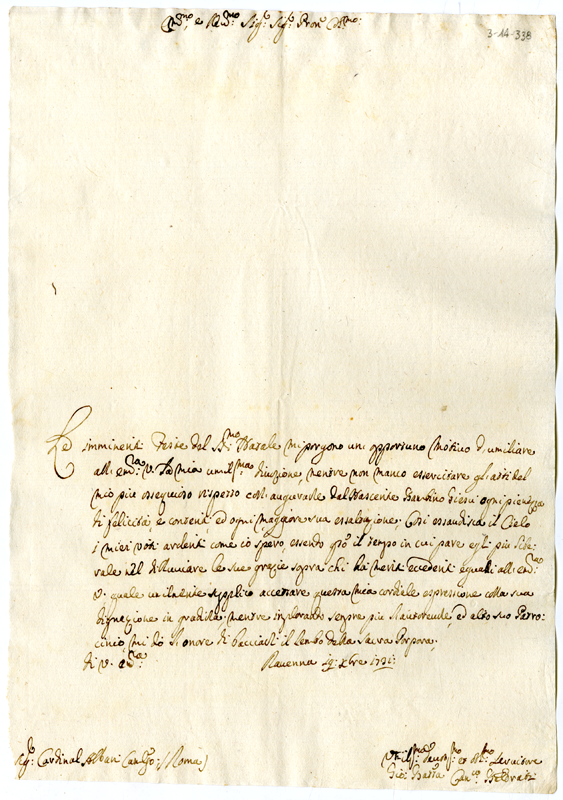 Em.mo, e R.mo Sig.r Sig.r Pron Col.mo
3-14-338
Le imminenti Feste del S.mo Natale mi porgono un opportuno motivo d'umiliare
all Em.za V. la mia umil.ma divozione, mentre non manco essercitare gl'atti del
mio più ossequioso rispetto coll'augurarle dal Nascente Bambino Giesù ogni pienezza
di felicità, e contenti ed ogni maggiore sua essaltazione. Così essaudisca il Cielo
i miei voti ardenti come io spero, essendo q.sto il tempo in cui pare egli più libe:
rale nel diluviare le sue grazie sopra chi hà meriti eccedenti eguali all Em.za
V. quale umilmente supplico accettare questa mia cordiale espressione colla sua
mentre implorando sempre più l'autorevole, ed alto suo Patro:
cinio, mi dò l'onore di bacciarli il Lembo della Sacra Porpora,
Di V. Em.za
Ravenna 19: Xbre 1721:
Sig.r Cardinal Albani Camgo: (Roma)
Umil.mo Devot.mo et Ob.mo Servitore
Gio: Batta